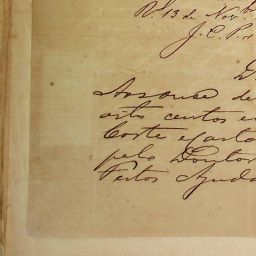 R. 13 de Nov.
J. C. P.
D
Aos onze de
oito centos e
Corte e carto
pelo Doutor
Feitos Ajuda